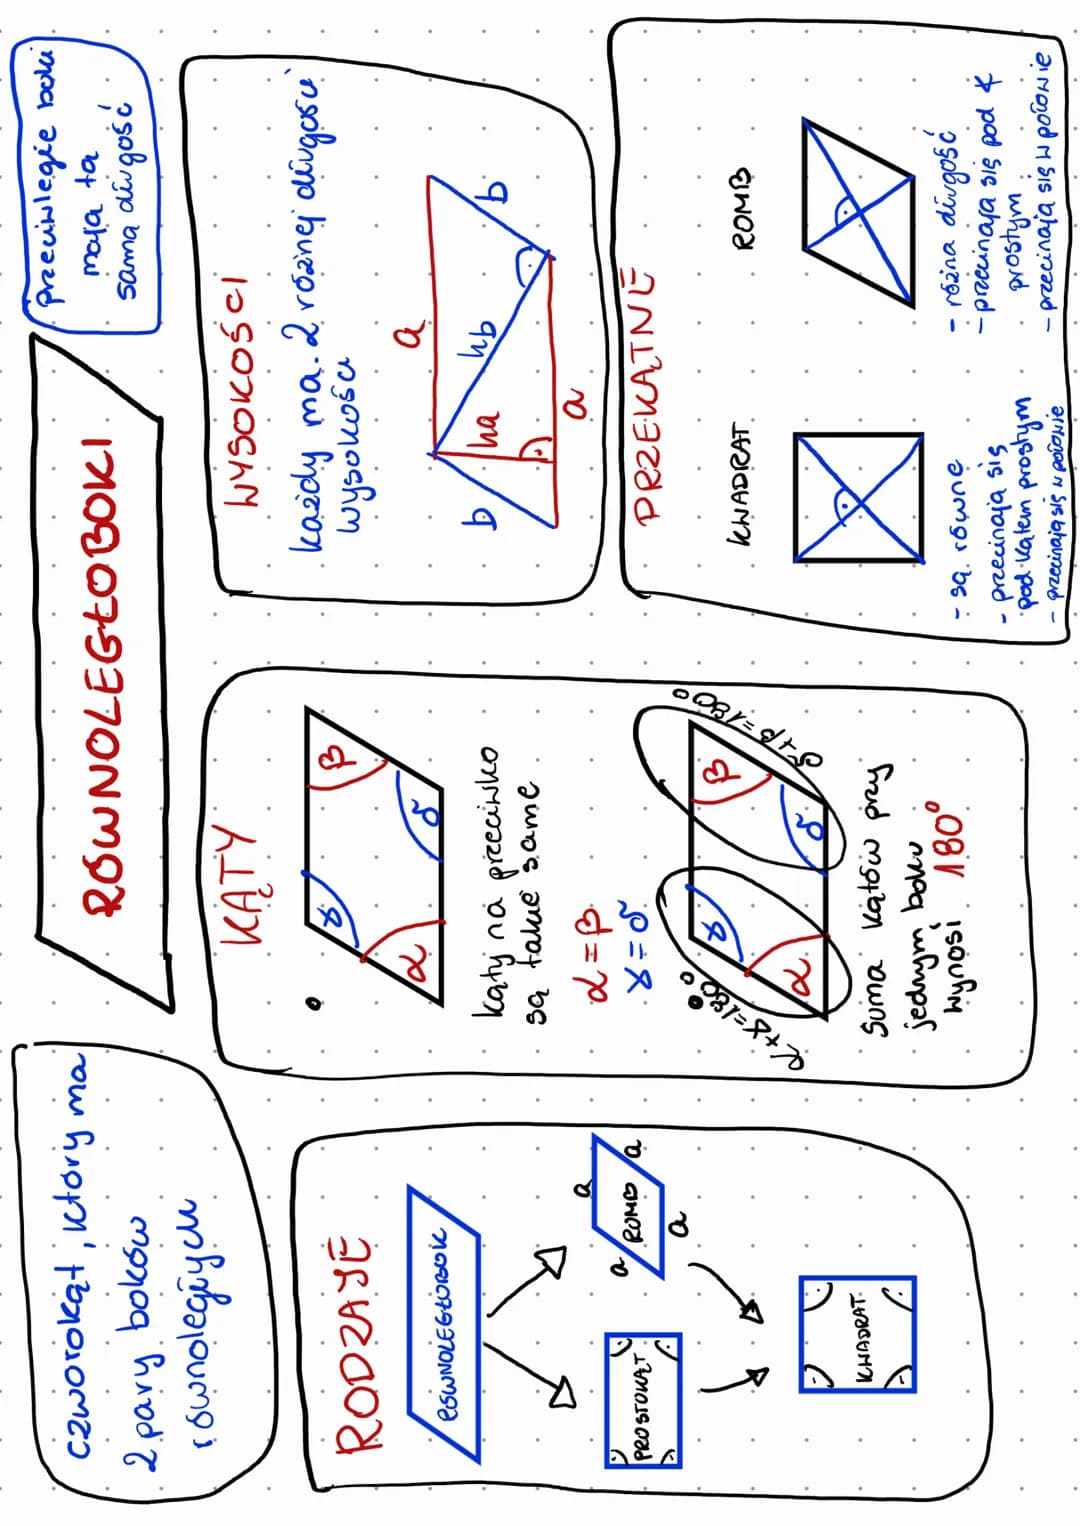 RÓWNOLEGŁOBOKI
czworokąt, który ma
2 pary boków
równoległych
przeciwległe boki
mają tą
samą długość
RODZAJE
RÓWNOLEGŁOBOK
PROSTOKĄT
a
a
ROMB
a
a
KWADRAT
KĄTY
γ
β
α
δ
kąty na przeciwko
są takie same
α = β
γ = δ
α+γ=180°
δ+β=180°
γ
β
α
δ
Suma kątów przy
jednym boku
wynosi 180°
WYSOKOŚCI
każdy ma 2 różnej długości
wysokości
a
b
ha
hb
b
a
PRZEKĄTNE
KWADRAT
- są równe
- przecinają się
pod kątem prostym
- przecinają się w połowie
ROMB
- różna długość
- przecinają się pod ∢
prostym
- przecinają się w połowie